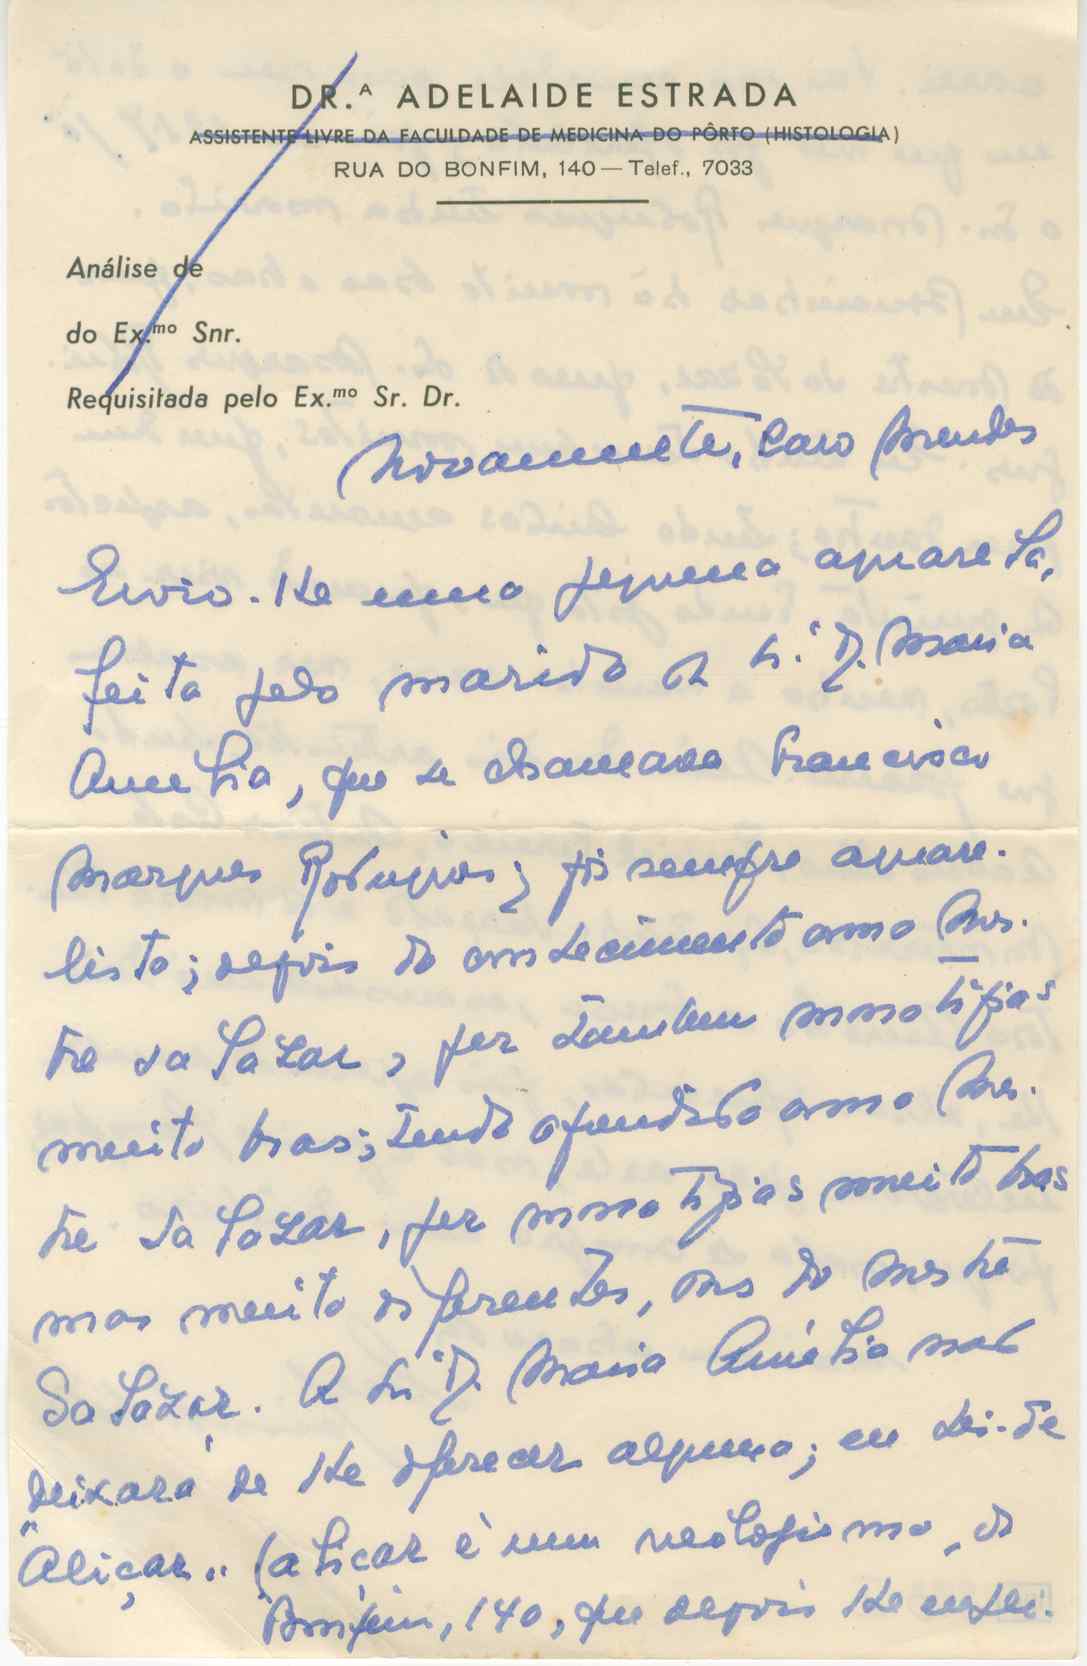 DR.ª ADELAIDE ESTRADA
ASSISTENTE LIVRE DA FACULDADE DE MEDICINA DO PÔRTO (HISTOLOGIA)
RUA DO BONFIM, 140 — Telef., 7033
Análise de
do Ex.mo Snr.
Requisitada pelo Ex.mo Sr. Dr.
Novamente, Caro Mendes
Envio-lhe uma pequena aguarela,
feita pelo marido da Sr.ª D. Maria
Amélia, que se chamava Francisco
Marques Rodrigues; foi sempre aguare-
lista; depois do conhecimento com o Mes-
tre Salazar, fez tambem monotipias
muito boas; tendo aprendido com o Mes-
tre Salazar, fez monotipias muito boas
mas muito diferentes, das do Mestre
Salazar. A Sr.ª D. Maria Amélia não
deixará de lhe oferecer alguma; eu hei-de
"aliçar" (aliçar é um neologismo do
Bonfim, 140, que depois lhe expli-